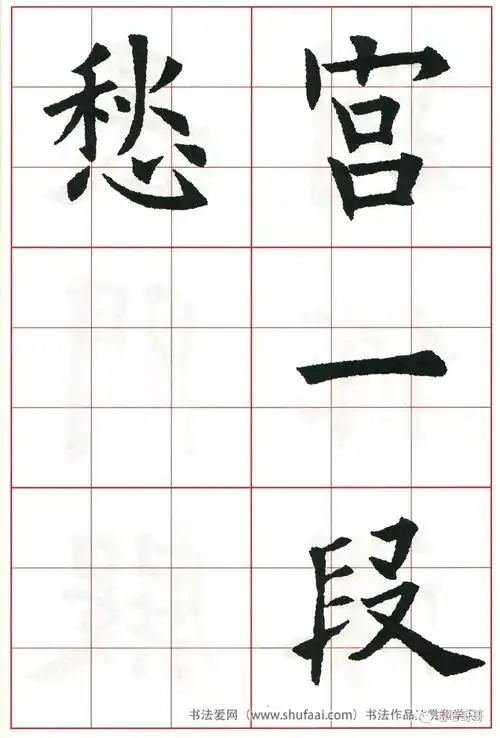 宫一段
愁
书法爱网（www.shufaai.com）书法作品